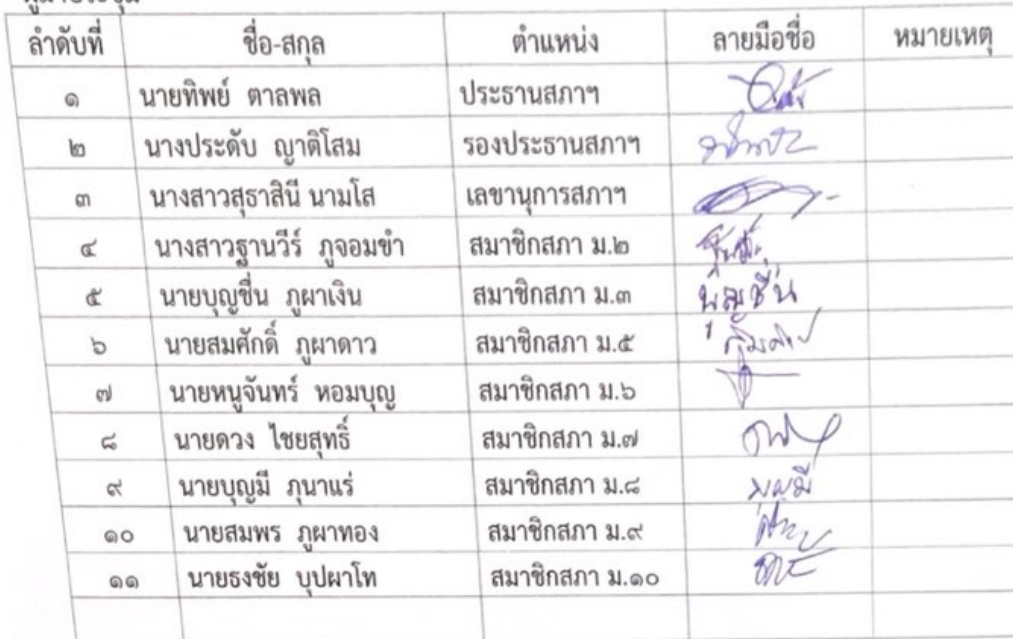 ผู้มาประชุม
ลำดับที่ ชื่อ-สกุล ตำแหน่ง ลายมือชื่อ หมายเหตุ
๑ นายทิพย์ ตาลพล ประธานสภาฯ
๒ นางประดับ ญาติโสม รองประธานสภาฯ
๓ นางสาวสุธาสินี นามโส เลขานุการสภาฯ
๔ นางสาวฐานวีร์ ภูจอมขำ สมาชิกสภา ม.๒
๕ นายบุญชื่น ภูผาเงิน สมาชิกสภา ม.๓ บุญชื่น
๖ นายสมศักดิ์ ภูผาดาว สมาชิกสภา ม.๕
๗ นายหนูจันทร์ หอมบุญ สมาชิกสภา ม.๖
๘ นายดวง ไชยสุทธิ์ สมาชิกสภา ม.๗
๙ นายบุญมี ภูนาแร่ สมาชิกสภา ม.๘
๑๐ นายสมพร ภูผาทอง สมาชิกสภา ม.๙
๑๑ นายธงชัย บุปผาโท สมาชิกสภา ม.๑๐